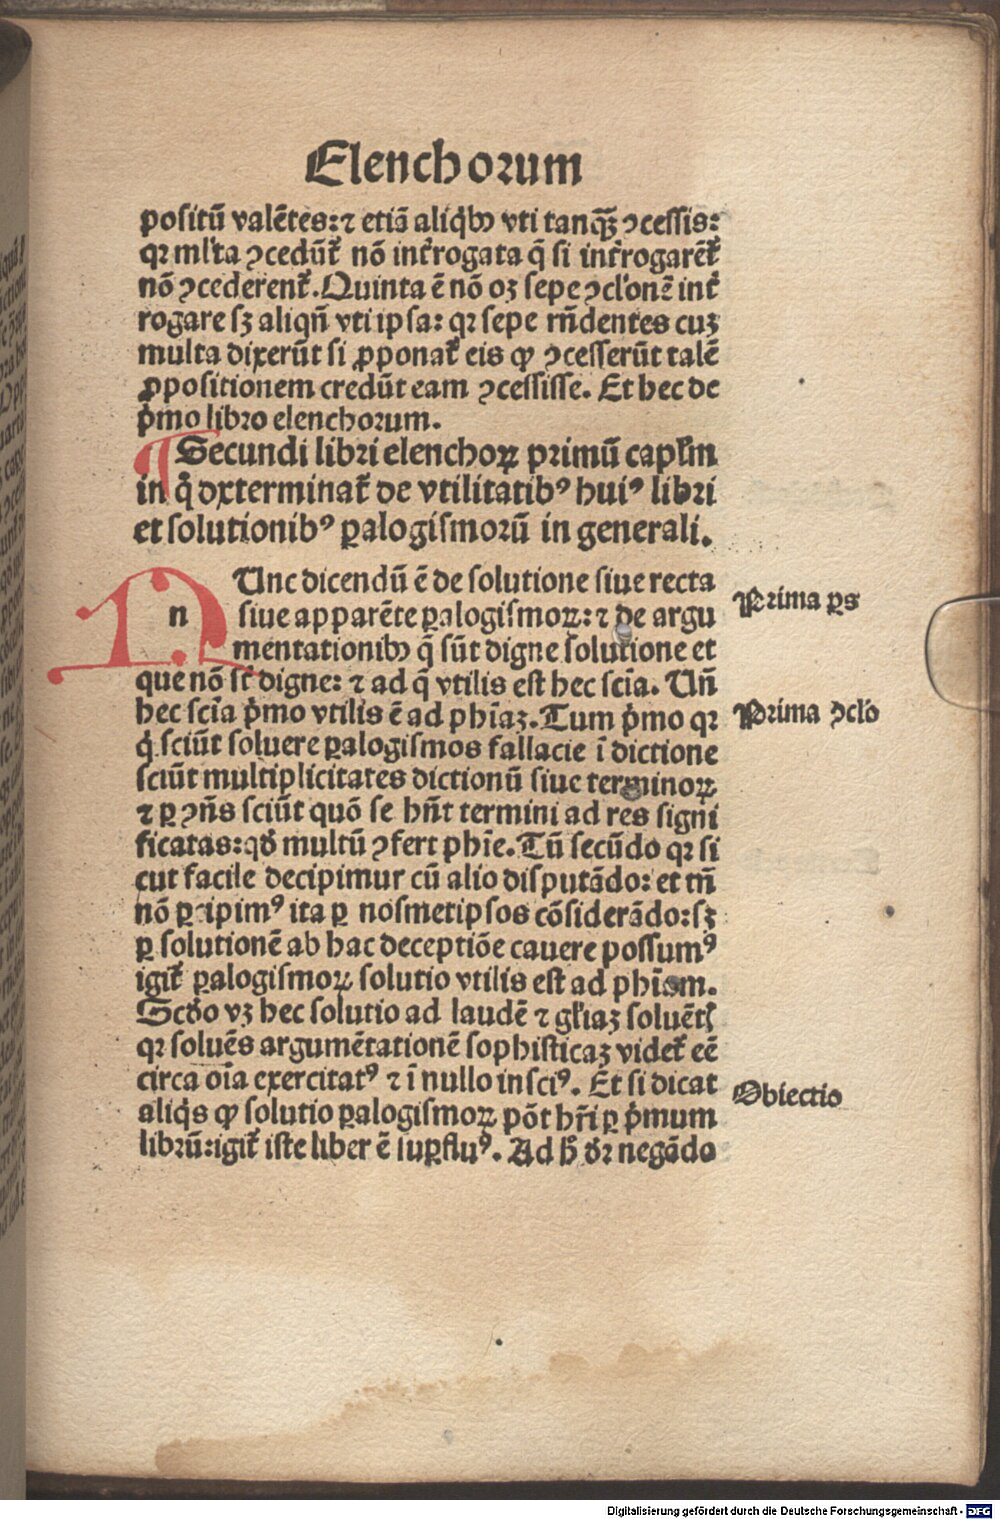 Elenchorum
positū valētes: ⁊ etiā aliqͥbꝰ vti tanꝙ̃ ꝯcessis:
qꝛ ml̓ta ꝯcedūt᷑ nō int᷑rogata q̄ si int᷑rogarēt᷑
nō ꝯcederent᷑. Quinta ē nō oꝫ sepe ꝯcl̓onē int᷑
rogare sꝫ aliqn̄ vti ipsa: qꝛ sepe rn̄dentes cuꝫ
multa dixerūt si ꝓponat᷑ eis ꝙ ꝯcesserūt talē
ꝓpositionem credūt eam ꝯcessisse. Et hec de
pͥmo libro elenchorum.
¶ Secundi libri elenchoꝝ primū capl̓m
in q̊ dxterminat᷑ de vtilitatibꝰ huiꝰ libri
et solutionibꝰ ꝑalogismorū in generali.
n Unc dicendū ē de solutione siue recta
siue apparēte ꝑalogismoꝝ: ⁊ de argu
mentationibꝰ q̄ sūt digne solutione et
que nō st̄ digne: ⁊ ad q̄ vtilis est hec scīa. Un̄
hec scīa pͥmo vtilis ē ad phīaꝫ. Tum pͥmo qꝛ
qͥ sciūt soluere ꝑalogismos fallacie ī dictione
sciūt multiplicitates dictionū siue terminoꝝ
⁊ ꝑ ꝯn̄s sciūt quō se hn̄t termini ad res signi
ficatas: qd̓ multū ꝯfert phīe. Tū secūdo qꝛ si
cut facile decipimur cū alio disputādo: et tn̄
nō ꝑcipimꝰ ita ꝑ nosmetipsos cōsiderādo: sꝫ
ꝑ solutionē ab hac deceptiōe cauere possumꝰ
igit᷑ ꝑalogismoꝝ solutio vtilis est ad phīam.
Scd̓o vꝫ hec solutio ad laudē ⁊ gl̓iaꝫ soluētꝭ
qꝛ soluēs argumētationē sophisticaꝫ videt᷑ eē
circa oīa exercitatꝰ ⁊ ī nullo insciꝰ. Et si dicat
aliqͥs ꝙ solutio ꝑalogismoꝝ pōt hr̄i ꝑ pͥmum
librū: igit᷑ iste liber ē suꝑfluꝰ. Ad h̄ dr̄ negādo
Prima ꝑs
Prima ꝯcl̓o
Obiectio
Digitalisierung gefördert durch die Deutsche Forschungsgemeinschaft - DFG